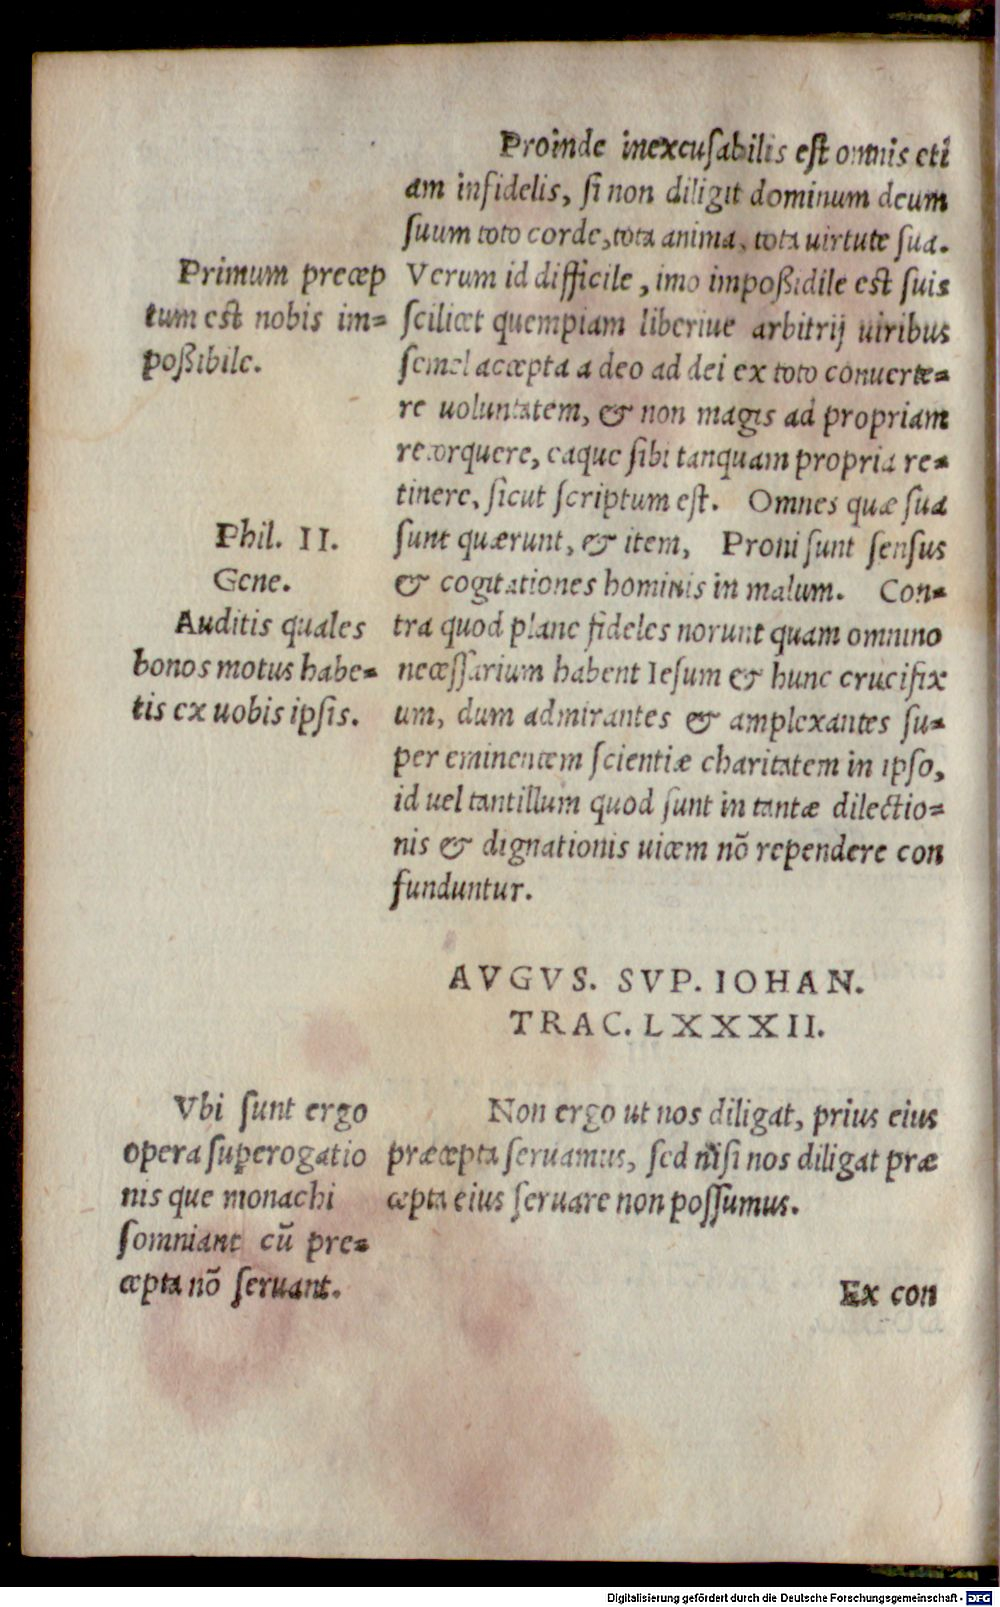 Proinde inexcusabilis est omnis eti
am infidelis, si non diligit dominum deum
suum toto corde, tota anima, tota uirtute sua.
Verum id difficile, imo impoßidile est suis
scilicet quempiam liberiue arbitrij uiribus
semel accepta a deo ad dei ex toto conuerte=
re uoluntatem, & non magis ad propriam
retorquere, eaque sibi tanquam propria re=
tinere, sicut scriptum est. Omnes quæ sua
sunt quærunt, & item, Proni sunt sensus
& cogitationes hominis in malum. Con=
tra quod plane fideles norunt quam omnino
necessarium habent Iesum & hunc crucifix
um, dum admirantes & amplexantes su=
per eminentem scientiæ charitatem in ipso,
id uel tantillum quod sunt in tantæ dilectio=
nis & dignationis uicem nõ rependere con
funduntur.
Primum precep
tum est nobis im=
poßibile.
Phil. II.
Gene.
Auditis quales
bonos motus habe=
tis ex uobis ipsis.
AVGVS. SVP. IOHAN.
TRAC. LXXXII.
Non ergo ut nos diligat, prius eius
præcepta seruamus, sed nisi nos diligat præ
cepta eius seruare non possumus.
Vbi sunt ergo
opera suꝑerogatio
nis que monachi
somniant cũ pre=
cepta nõ seruant.
Ex con
Digitalisierung gefördert durch die Deutsche Forschungsgemeinschaft - DFG